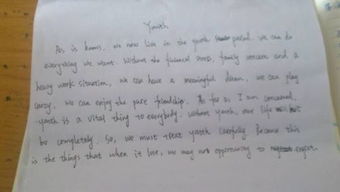 Youth
As is known, we now live in the youth period. we can do
everything we want. Without the financial, family concern and a
heavy work situation, we can have a meaningful dream, we can play
crazy, we can enjoy the pure friendship. As far as I am concerned,
youth is a vital thing to everybody. without youth, our life
be completely. So, we must treat youth carefully. Because this
is the things that when it lose, we may no opportunity to regret.